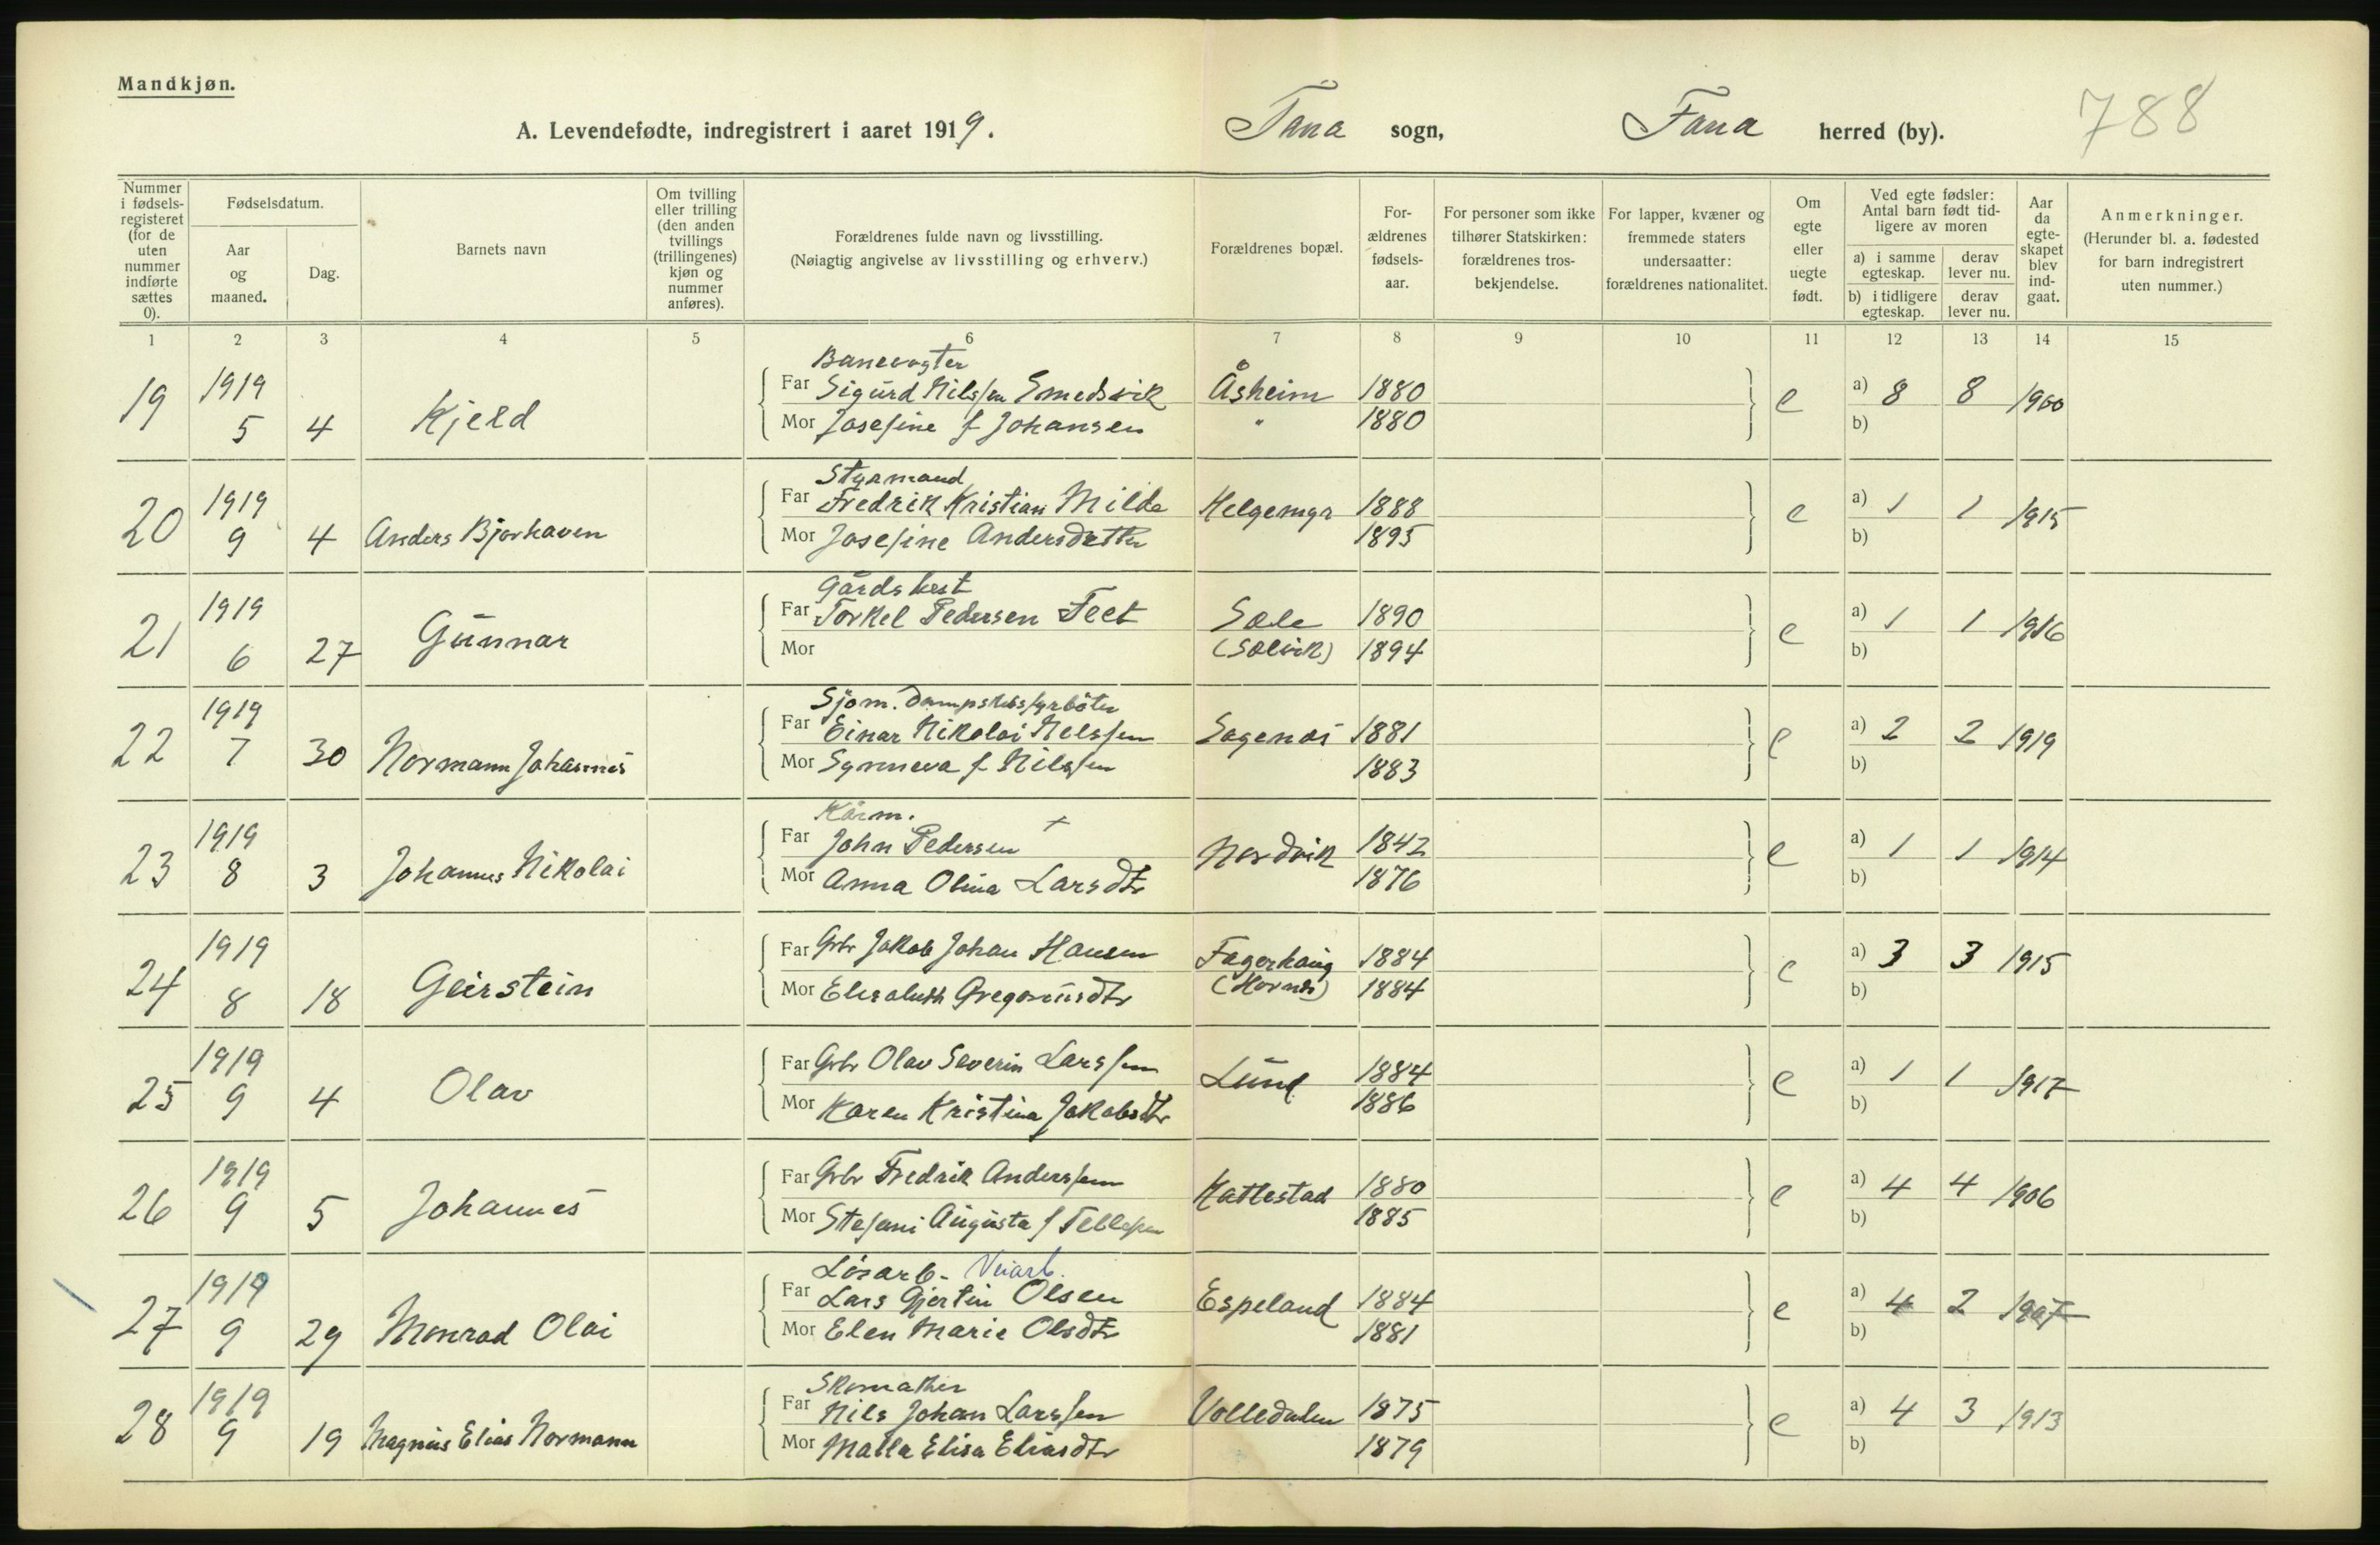 Mandkjøn.
A. Levendefødte, indregistrert i aaret 1919. Fana sogn, Fana herred (by). 788
Nummer i fødsels-registeret (for de uten nummer indførte sættes 0).
Fødselsdatum.
Aar og maaned.
Dag.
Barnets navn
Om tvilling eller trilling (den anden tvillings (trillingenes) kjøn og nummer anføres).
Forældrenes fulde navn og livsstilling.
(Nøiagtig angivelse av livsstilling og erhverv.)
Forældrenes bopæl.
For-ældrenes fødsels-aar.
For personer som ikke tilhører Statskirken: forældrenes tros-bekjendelse.
For lapper, kvæner og fremmede staters undersaatter: forældrenes nationalitet.
Om egte eller uegte født.
Ved egte fødsler: Antal barn født tid-ligere av moren
a) i samme egteskap. derav lever nu.
b) i tidligere egteskap. derav lever nu.
Aar da egte-skapet blev ind-gaat.
Anmerkninger.
(Herunder bl. a. fødested for barn indregistrert uten nummer.)
1 2 3 4 5 6 7 8 9 10 11 12 13 14 15
Banevogter
19 1919 Far Sigurd Nilssen Smedsvik Åsheim 1880 e a) 8 8 1900
5 4 Kjeld Mor Josefine f Johansen " 1880 b)
Styrmand
20 1919 Far Fredrik Kristian Milde Helgemyr 1888 e a) 1 1 1915
9 4 Anders Bjorhaven Mor Josefine Andersdatter 1895 b)
Gårdsbest
21 1919 Far Torkel Pedersen Feet Søle 1890 e a) 1 1 1916
6 27 Gunnar Mor (Sølvik) 1894 b)
Sjöm. Dampskibsfyrböter
22 1919 Far Einar Nikolai Nelssen Sagenes 1881 e a) 2 2 1919
7 30 Normann Johannes Mor Synneva f Nilssen 1883 b)
Kårm.
23 1919 Far John Pedersen + Nordvik 1842 e a) 1 1 1914
8 3 Johannes Nikolai Mor Anna Olina Larsdtr 1876 b)
24 1919 Far Grbr Jakob Johan Hansen Fagerhaug 1884 e a) 3 3 1915
8 18 Geirstein Mor Elisabeth Gregoriusdtr (Hornes) 1884 b)
25 1919 Far Grbr Olav Severin Larssen Lund 1884 e a) 1 1 1917
9 4 Olav Mor Karen Kristina Jakobsdtr 1886 b)
26 1919 Far Grbr Fredrik Anderssen Hattestad 1880 e a) 4 4 1906
9 5 Johannes Mor Stefani Augusta f Tellefsen 1885 b)
Lösarb- Veiarb.
27 1919 Far Lars Gjertin Olsen Espeland 1884 e a) 4 2 1907
9 29 Monrad Olai Mor Elen Marie Olsdtr 1881 b)
Skomaker
28 1919 Far Nils Johan Larssen Volledalen 1875 e a) 4 3 1913
9 19 Magnus Elias Normann Mor Malla Elisa Eliasdtr 1879 b)